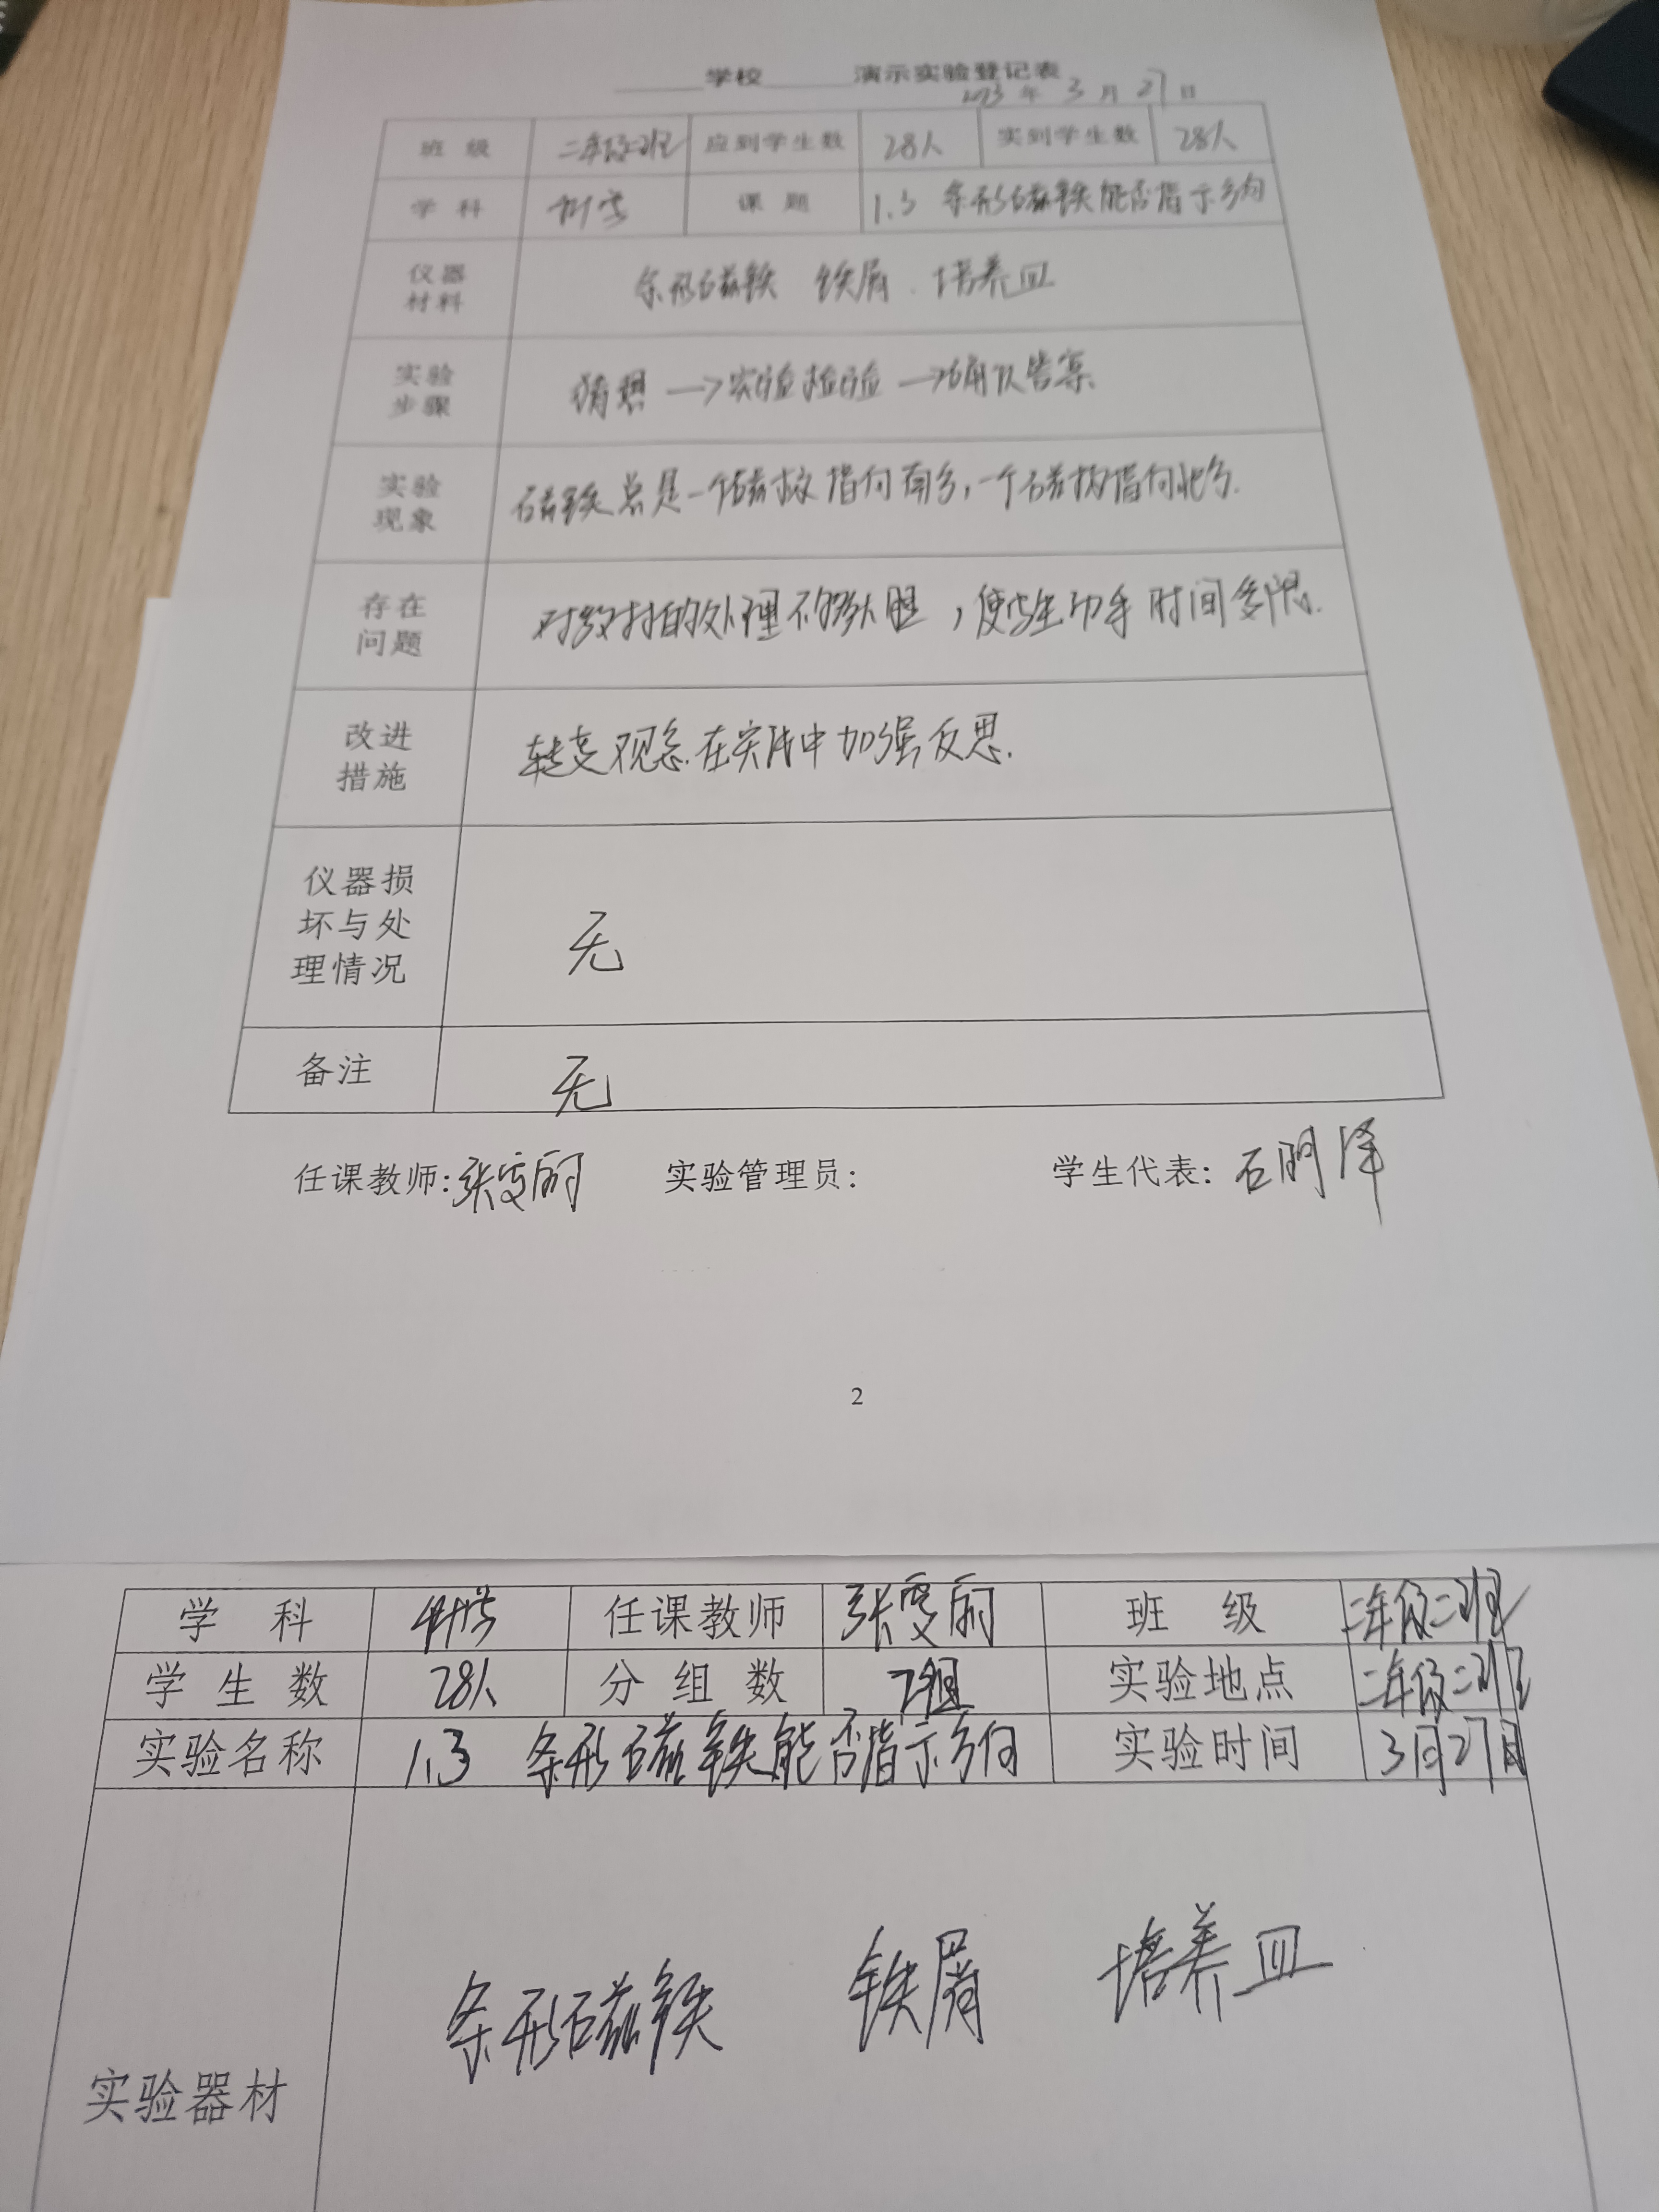 学校 演示实验登记表
2023年3月27日
班 级 二年级二班 应到学生数 28人 实到学生数 28人
学 科 科学 课 题 1.3 条形磁铁能否指示方向
仪器材料 条形磁铁 铁屑 培养皿
实验步骤 猜想→实验检验→确认答案
实验现象 磁铁总是一个磁极指向南方,一个磁极指向北方.
存在问题 对教材的处理不够大胆,使学生动手时间受限.
改进措施 转变观念.在实践中加强反思.
仪器损坏与处理情况 无
备注 无
任课教师: 实验管理员: 学生代表:
2
学 科 科学 任课教师 班 级 二年级二班
学 生 数 28人 分 组 数 2组 实验地点 二年级二班
实验名称 1.3 条形磁铁能否指示方向 实验时间 3月27日
实验器材 条形磁铁 铁屑 培养皿